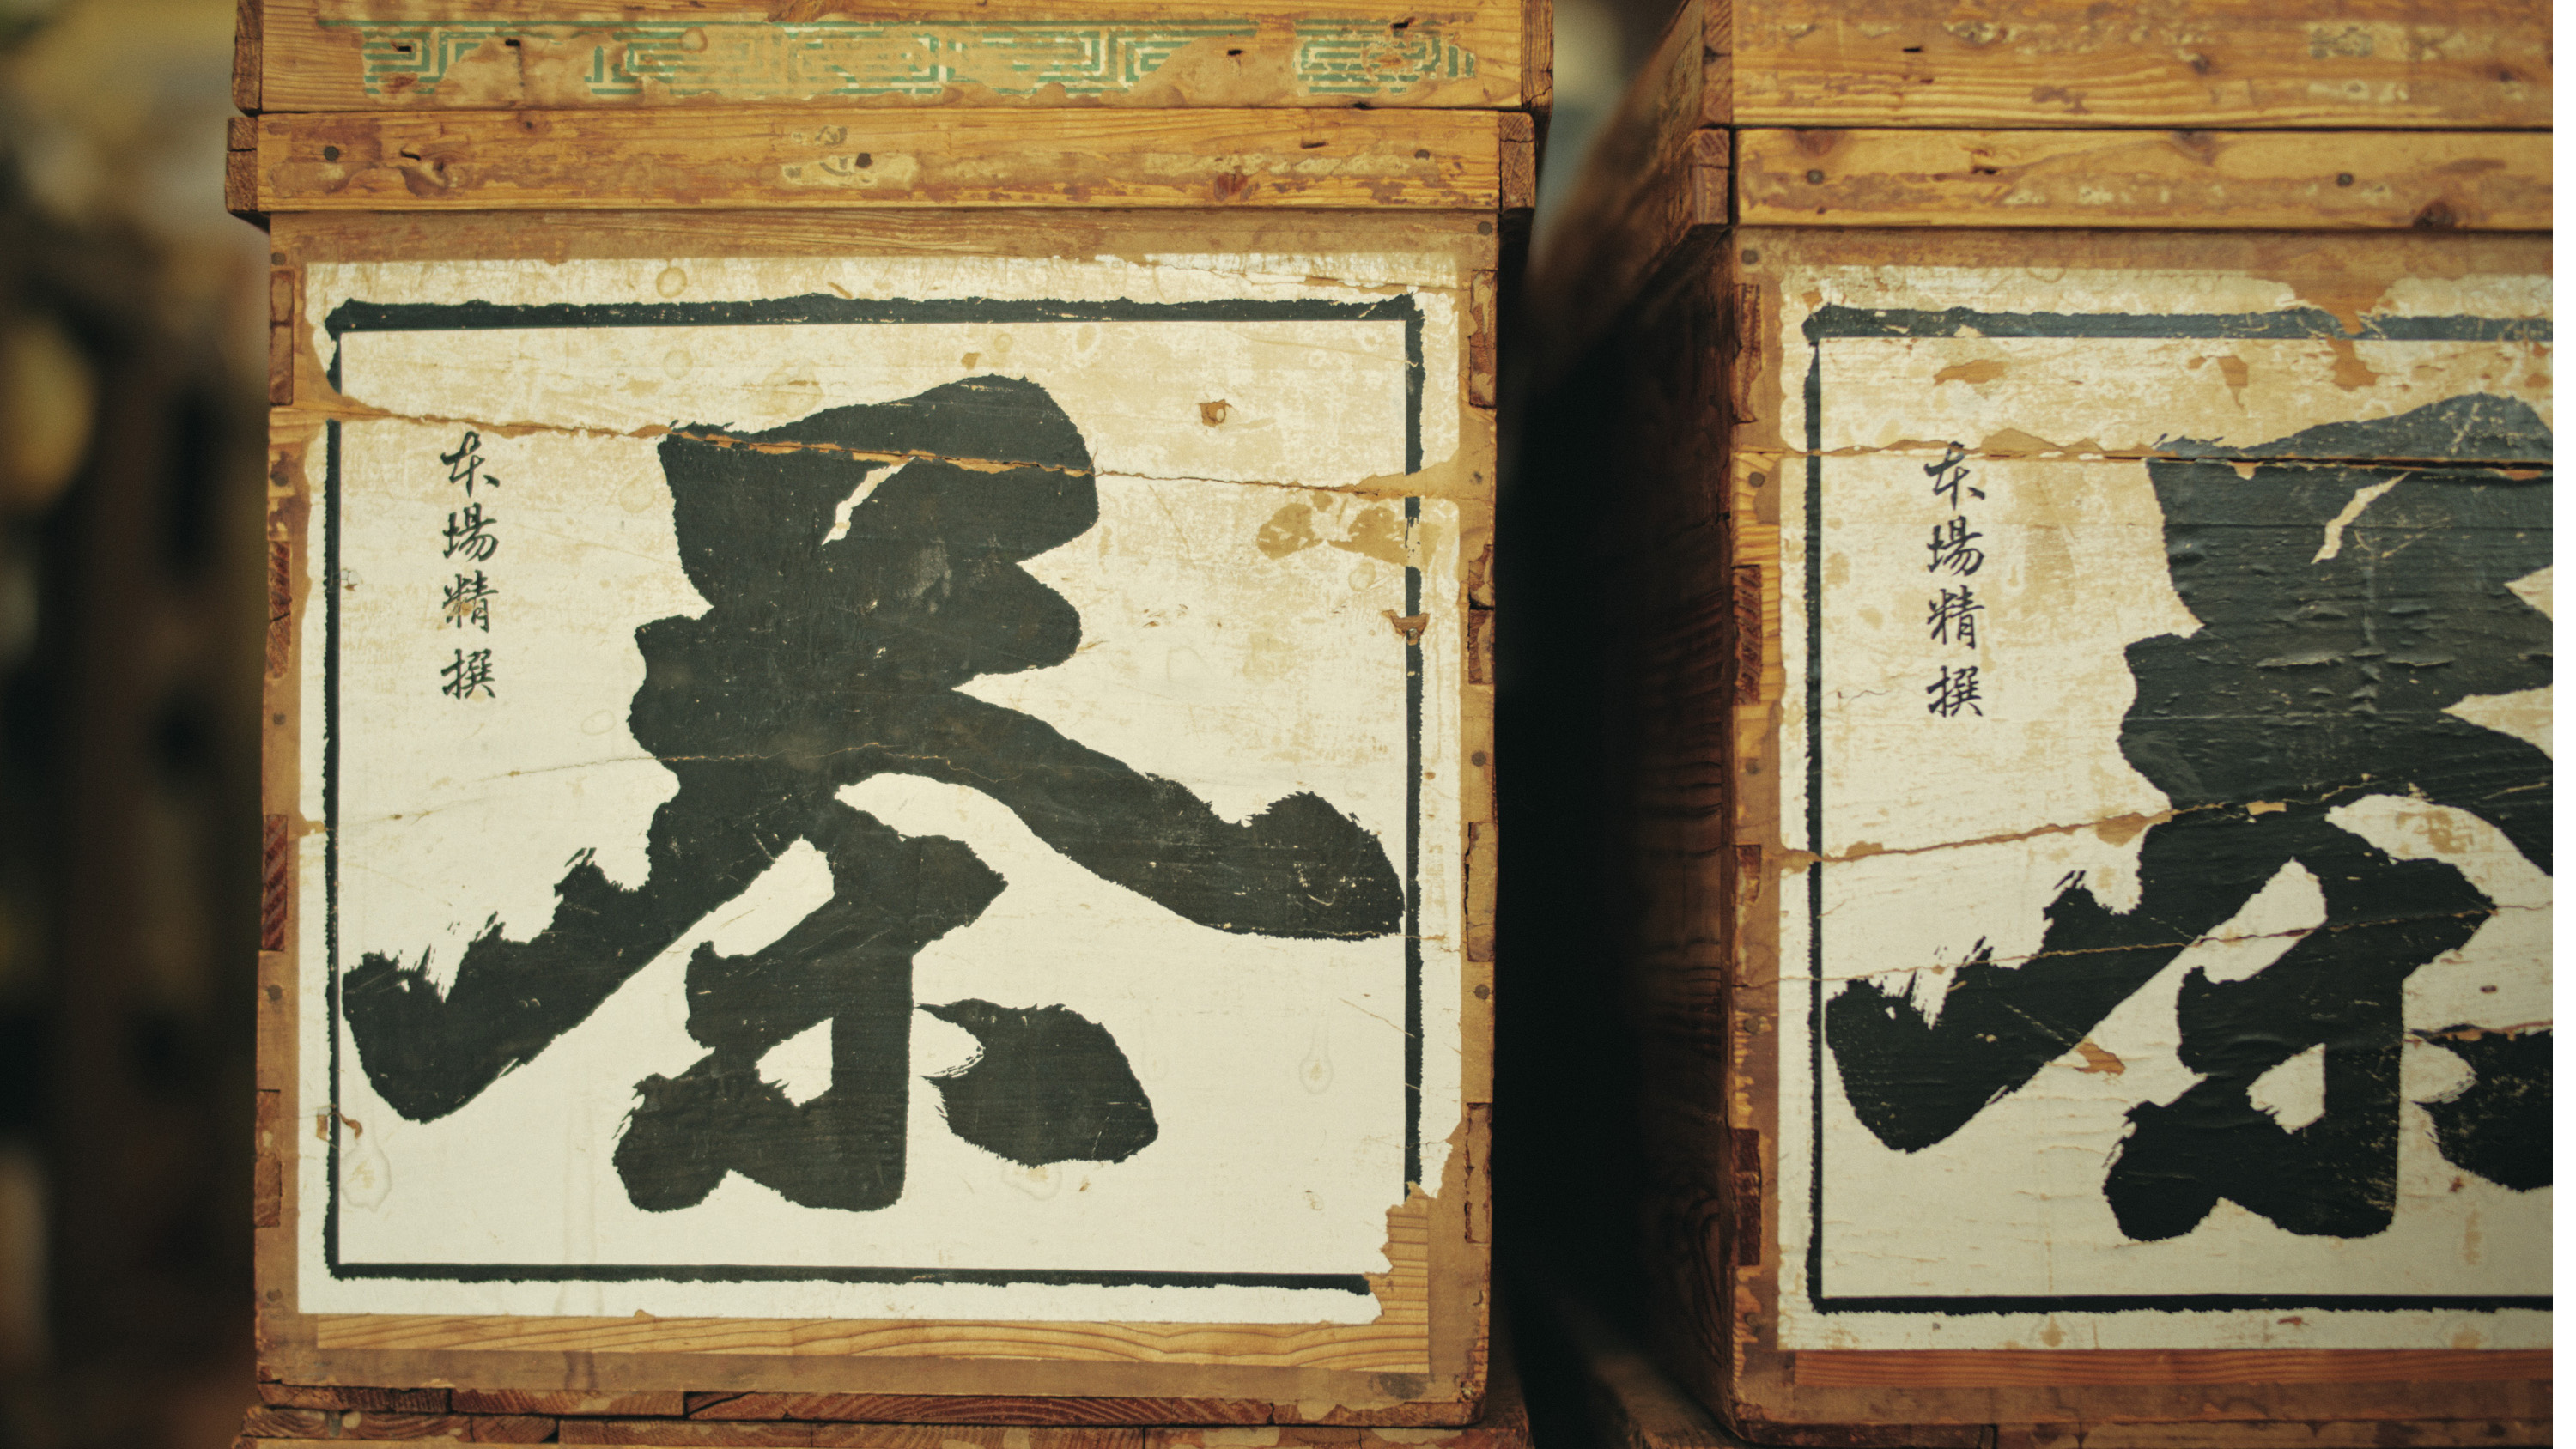 茶
本場精撰
茶
本場精撰